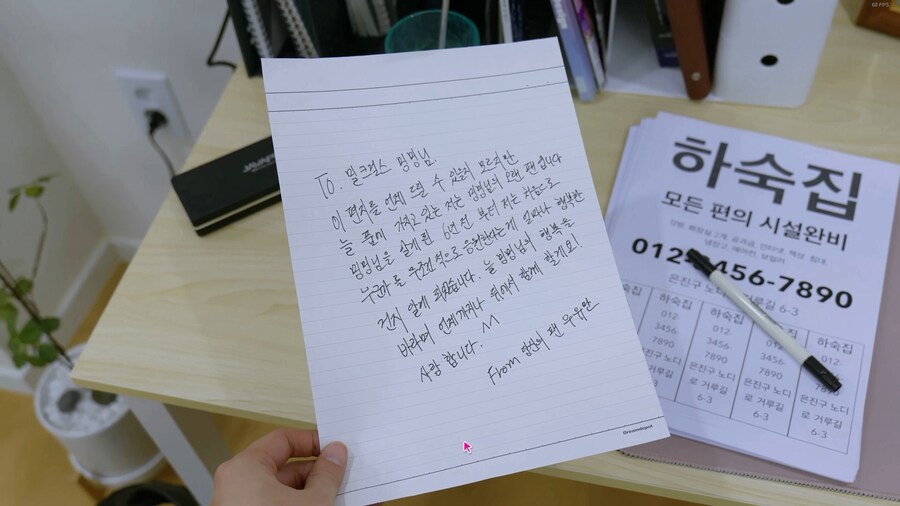 To. 밀크걸스 밍밍님
이 편지를 언제 드릴 수 있을지 모르지만
늘 품에 가지고 있는 저는 밍밍님의 오랜 팬 입니다
밍밍님을 알게 된 6년 전 부터 저는 처음으로
누군가를 무조건적으로 응원한다는게 얼마나 행복한
건지 알게 되었습니다. 늘 밍밍님의 행복을
바라며 언제까지나 뒤에서 함께 할게요!
사랑합니다. ^^
From 당신의 팬 우유만
하숙집
모든 편의 시설완비
화장실 2개, 공과금, 인터넷, 책상, 침대,
냉장고, 에어컨, 보일러
012 456-7890
거루길 6-3
하숙집
012-
3456-
7890
은진구 노디
로 거루길
6-3
하숙집
012-
3456-
7890
은진구 노디
로 거루길
6-3
하숙집
012-
3456-
7890
은진구 노디
로 거루길
6-3
하숙집
012-
3456-
7890
은진구 노디
로 거루길
6-3
60 FPS